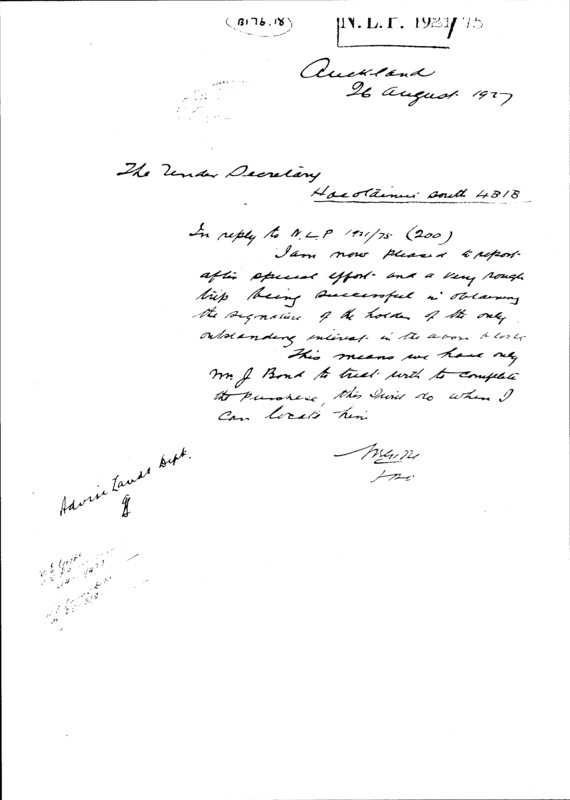 (B176.18)
N. L. P. 1921/75
Auckland
26 August 1927
The Under Secretary
Haeotainui South 4B1B
In reply to N.L.P 1921/75 (200)
I am now pleased to report
after special effort and a very rough
trip being successful in obtaining
the signature of the holder of the only
outstanding interest in the above block
This means we have only
Mr J Bond to treat with to complete
the Purchase, this I will do when I
can locate him
Advise Lands Dept.